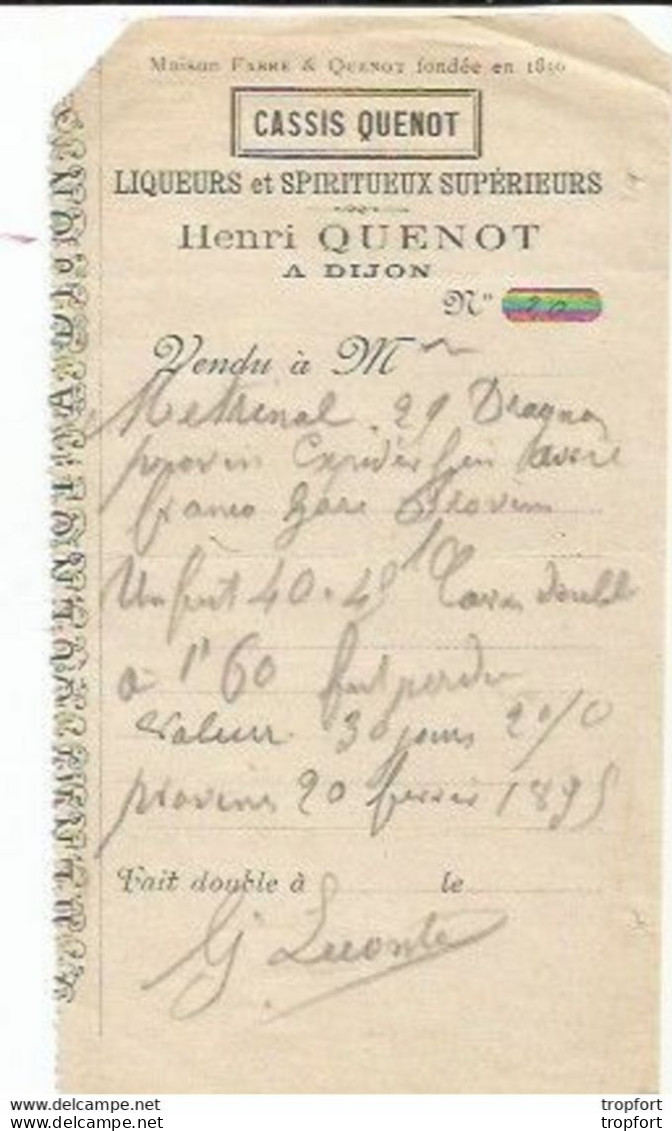 Maison FABRE & QUENOT fondée en 18
CASSIS QUENOT
LIQUEURS et SPIRITUEUX SUPÉRIEURS
Henri QUENOT
A DIJON
N° 20
Vendu à M
29 Dragon
provins fin
franco Gare Provins
Un fut 40.45 l Cassis double
à 1f 60 fut perdu
Valeur 30 jours 2 o/o
provins 20 fevrier 1895
Fait double à le
G Leconte
HENRI QUENOT A DIJON
All rights reserved
tropfort
Ne pas copier
tropfort